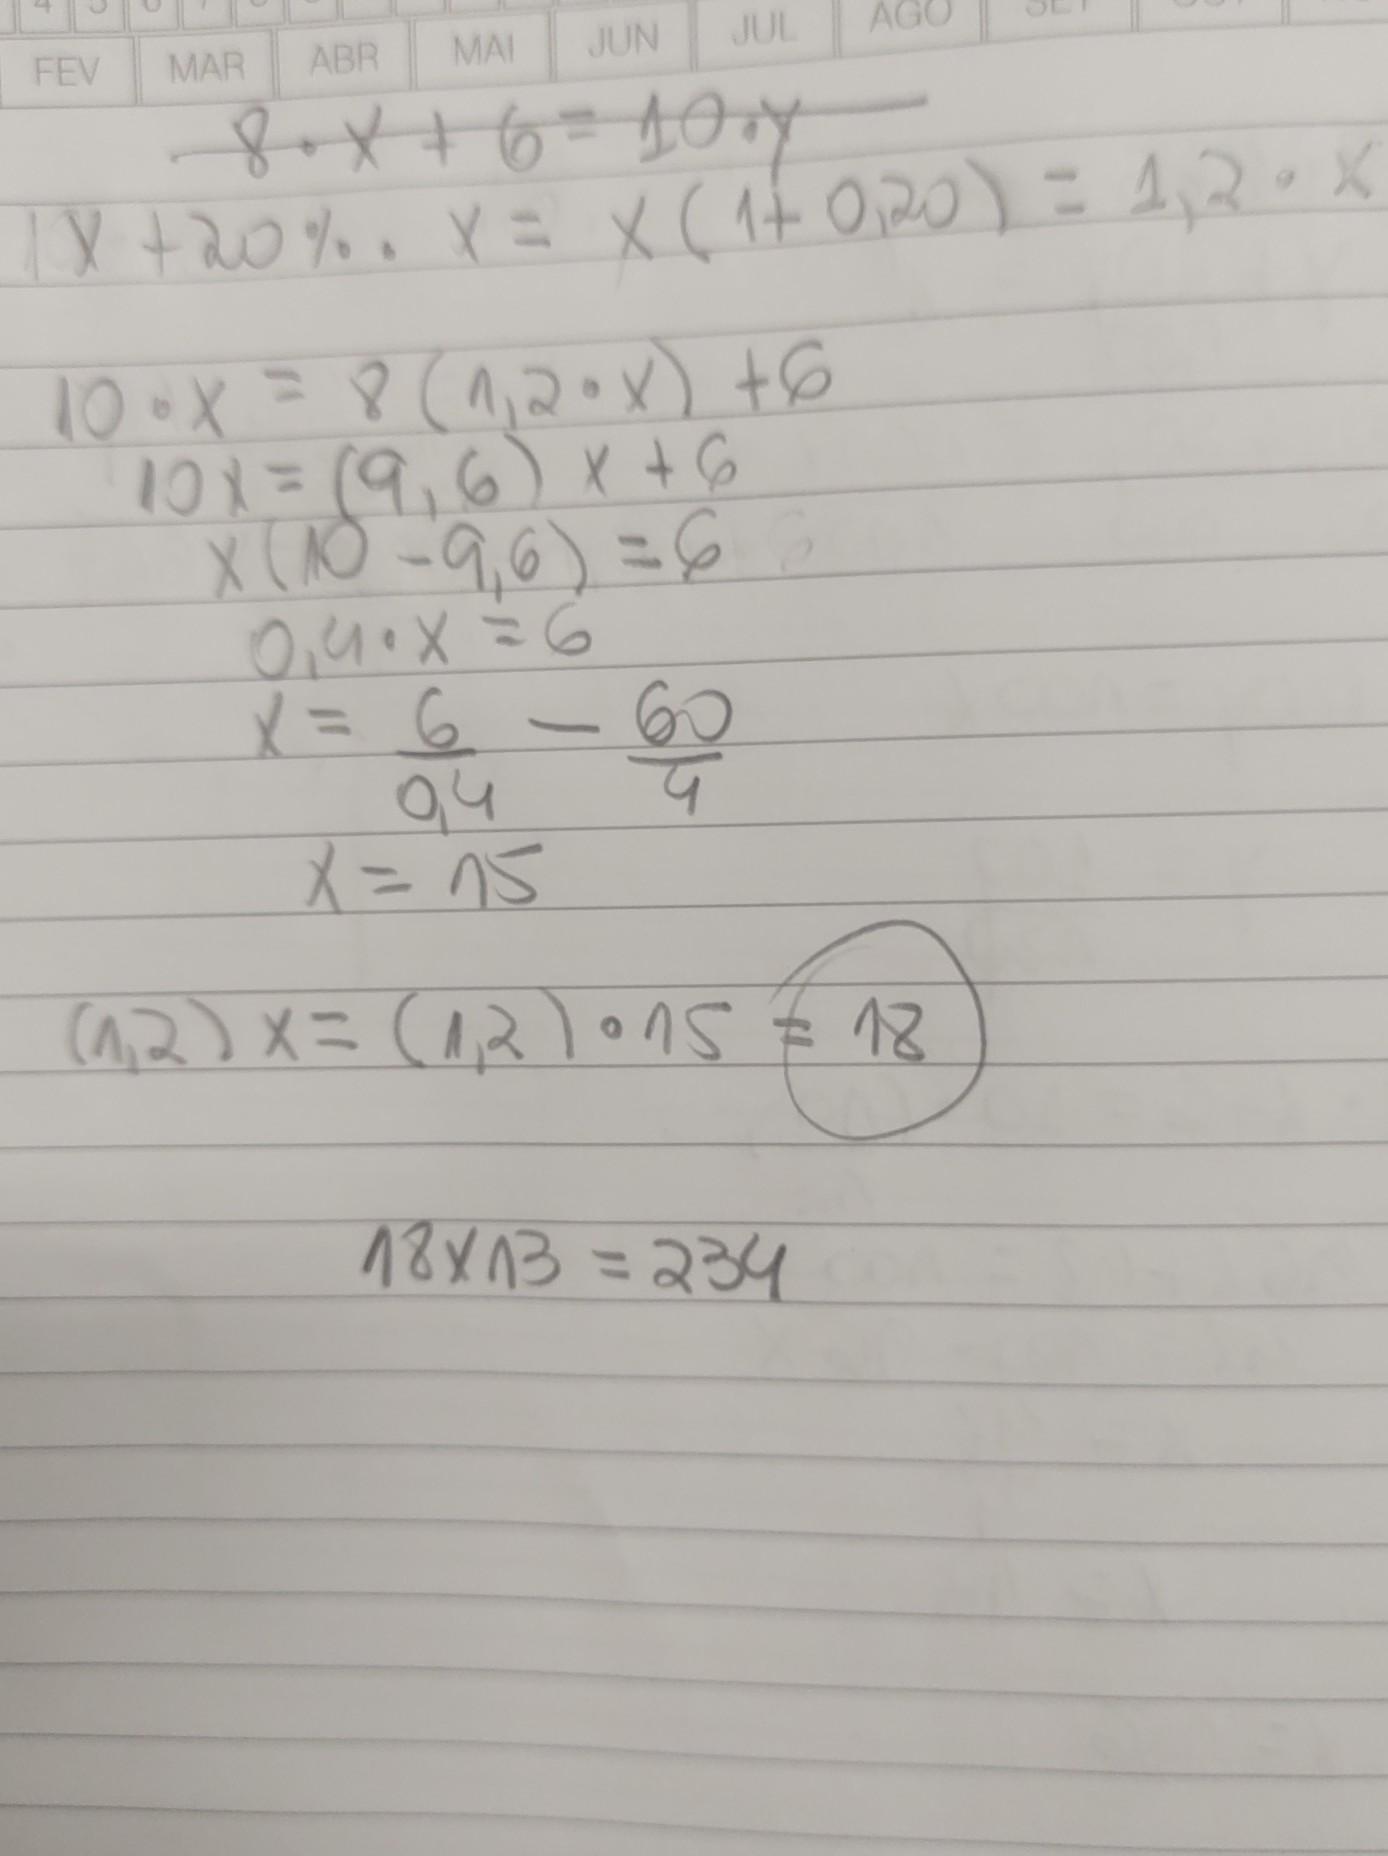 FEV MAR ABR MAI JUN JUL AGO
8·x + 6 = 10·y
x + 20%·x = x(1+0,20) = 1,2·x
10·x = 8(1,2·x) + 6
10x = (9,6) x + 6
x(10 - 9,6) = 6
0,4·x = 6
x = 6/0,4 - 60/4
x = 15
(1,2) x = (1,2)·15 = 18
18x13 = 234